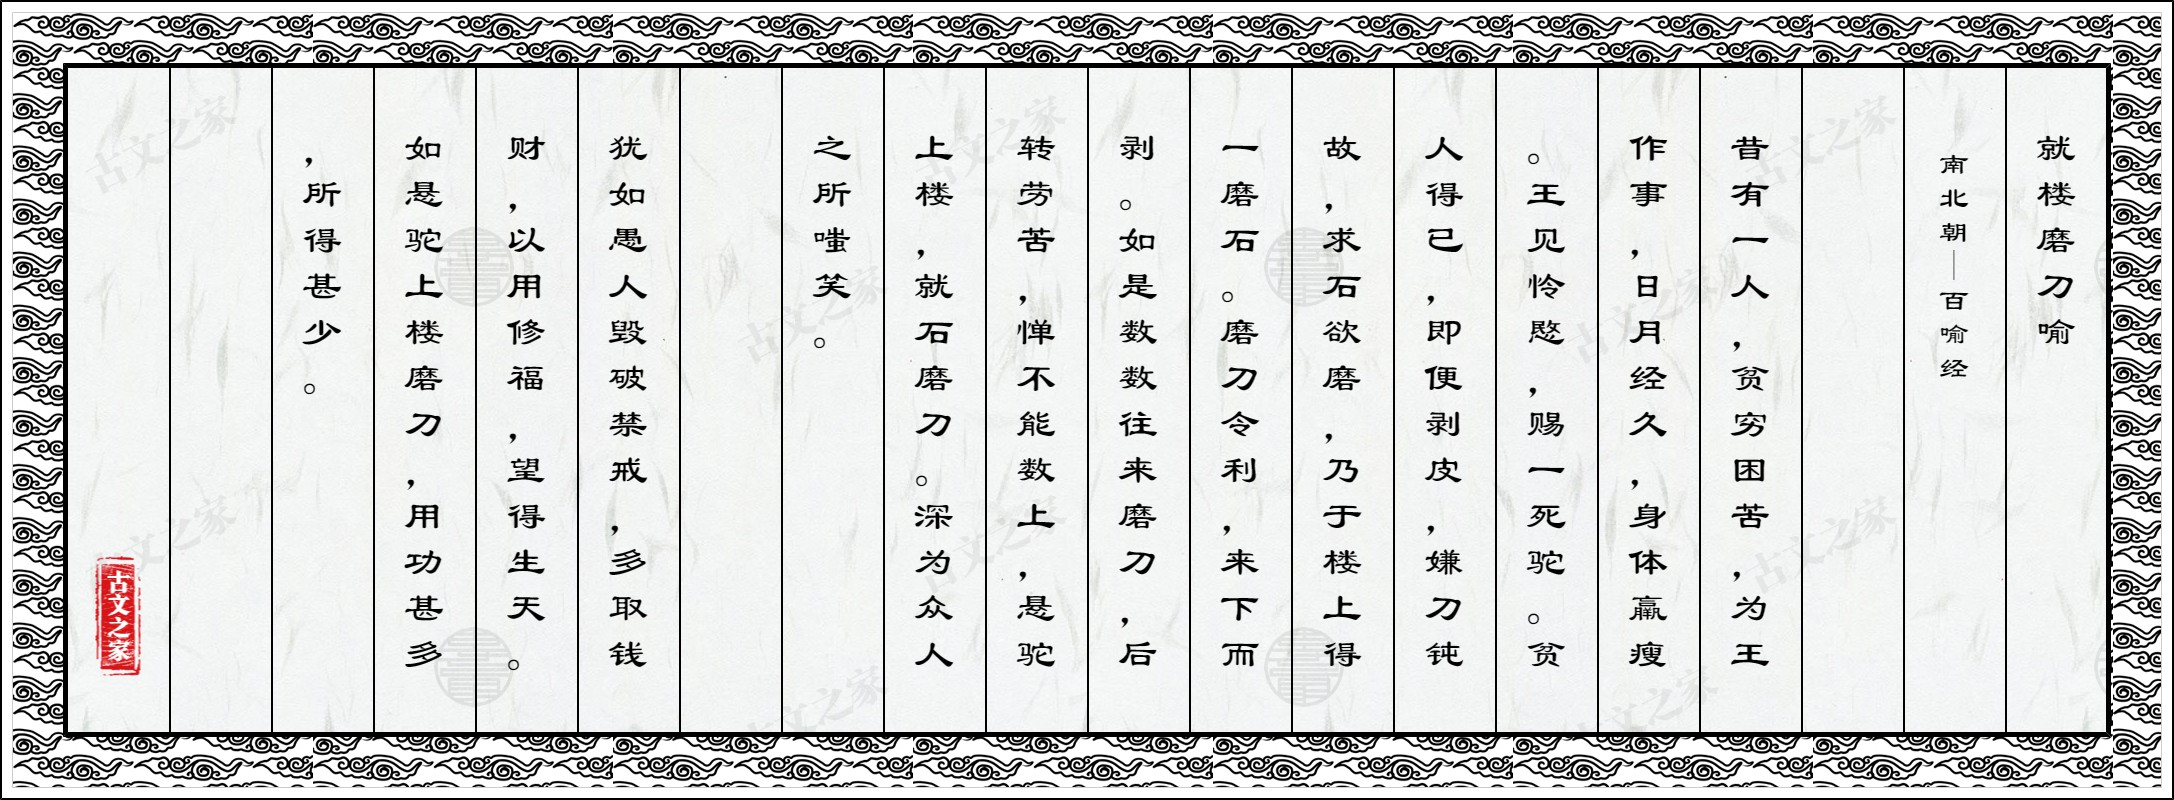 就楼磨刀喻
南北朝—百喻经
昔有一人，贫穷困苦，为王
作事，日月经久，身体羸瘦
。王见怜愍，赐一死驼。贫
人得已，即便剥皮，嫌刀钝
故，求石欲磨，乃于楼上得
一磨石。磨刀令利，来下而
剥。如是数数往来磨刀，后
转劳苦，惮不能数上，悬驼
上楼，就石磨刀。深为众人
之所嗤笑。
犹如愚人毁破禁戒，多取钱
财，以用修福，望得生天。
如悬驼上楼磨刀，用功甚多
，所得甚少。
古文之家